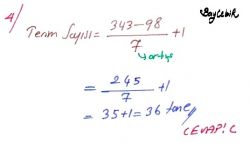 Baycebir
4/
Terim Sayısı = 343-98/7 +1
→artış
= 245/7 +1
= 35+1=36 tane
CEVAP: C